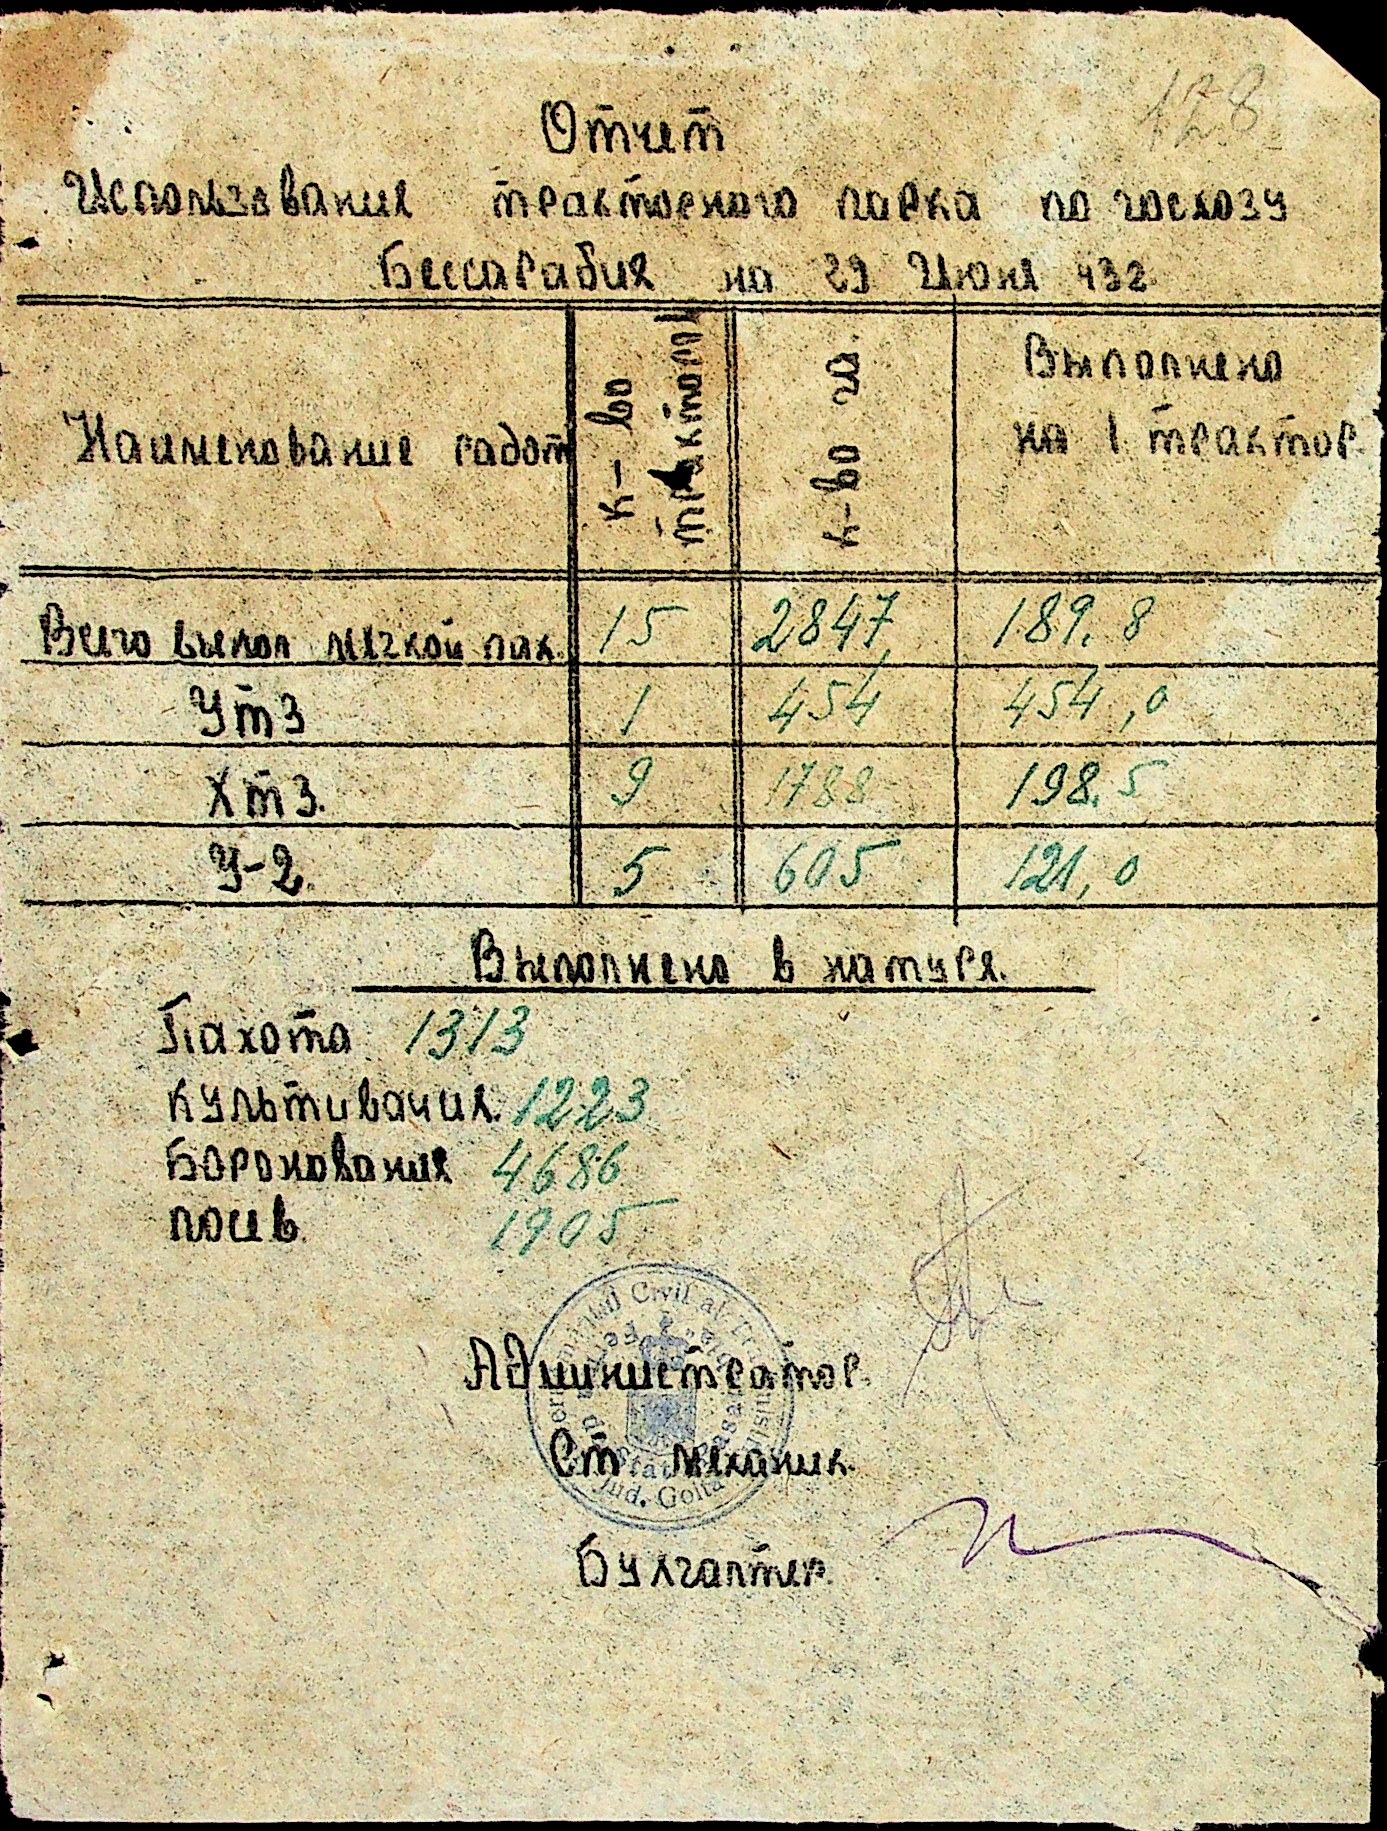 128
Отчет
Использования тракторного парка по госхозу
Бессарабия на 29 Июня 432
Наименование работ
К-во тракторов
К-во га.
Выполнено на 1 трактор.
Всего выпол мягкой пах. 15 2847 189.8
УТЗ 1 454 454,0
ХТЗ. 9 1788 198.5
У-2. 5 605 121,0
Выполнено в натуря.
Пахота 1313
Культивация. 1223
Боронования 4686
посев 1905
Администратор.
Ст. механик.
Бухгалтер.
Civil al
Jud. Golta